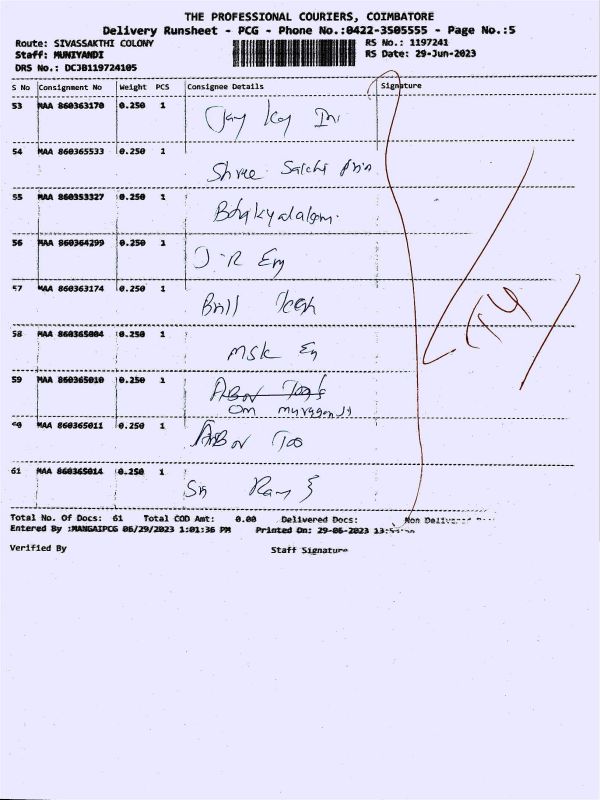 THE PROFESSIONAL COURIERS, COIMBATORE
Delivery Runsheet - PCG - Phone No.:0422-3505555 - Page No.:5
Route: SIVASSAKTHI COLONY RS No.: 1197241
Staff: MUNIYANDI RS Date: 29-Jun-2023
DRS No.: DCJB119724105
S No Consignment No Weight PCS Consignee Details Signature
53 MAA 860363170 0.250 1
Jay Kay In
54 MAA 860365533 0.250 1
Shree Prin
55 MAA 860353327 0.250 1
56 MAA 860364299 0.250 1
J-R Eng
57 MAA 860363174 0.250 1
Brill Tech
58 MAA 860365004 0.250 1
MSK En
59 MAA 860365010 0.250 1
ARBOV Tools
Om
60 MAA 860365011 0.250 1
ARBOV Too
61 MAA 860365014 0.250 1
Sri Ram E
Total No. Of Docs: 61 Total COD Amt: 0.00 Delivered Docs: Non Delivered
Entered By :MANGAIPCG 06/29/2023 1:01:36 PM Printed On: 29-06-2023
Verified By Staff Signature